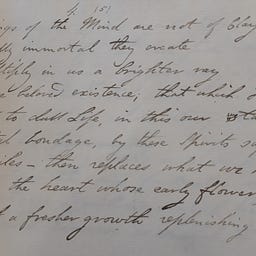 4 (5)
ings of the Mind are not of Clay
ly immortal they create
tiply in us a brighter ray
e beloved existence; that which
to dull Life, in this our sta
bondage, by these Spirits su
les — then replaces what we
the heart whose early flower
a fresher growth replenishing